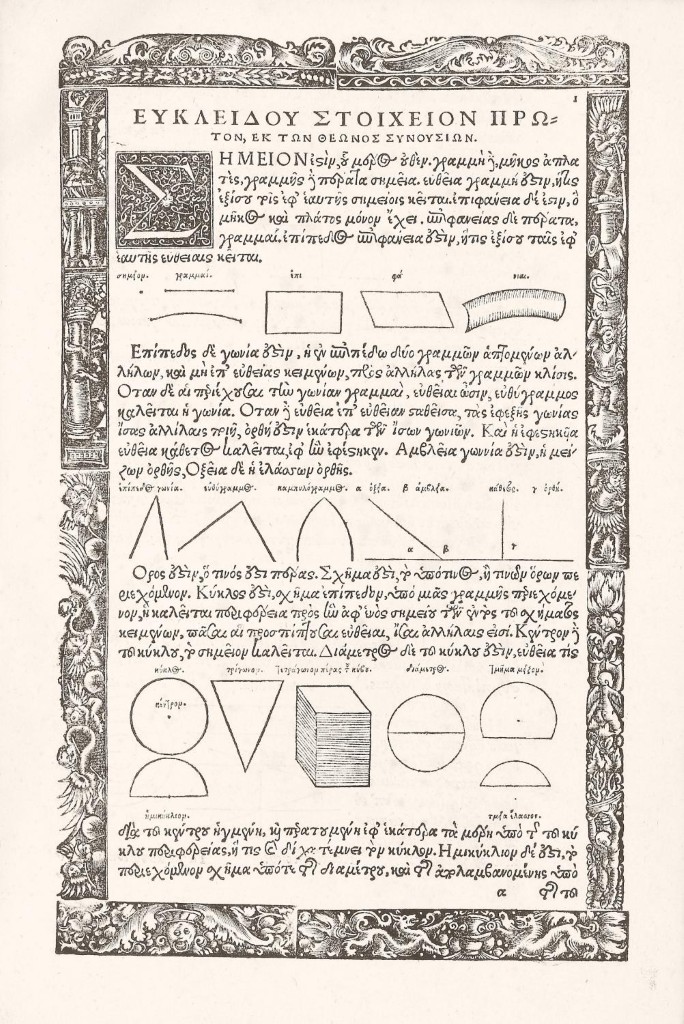 1
ΕΥΚΛΕΙΔΟΥ ΣΤΟΙΧΕΙΟΝ ΠΡΩ=
ΤΟΝ, ΕΚ ΤΩΝ ΘΕΩΝΟΣ ΣΥΝΟΥΣΙΩΝ.
ΣΗΜΕΙΟΝ ἐςιν, οὗ μέρος οὐθεν. γραμμὴ δὲ, μῆκος ἀπλα
τὲς, γραμμῆς δὲ πέρατα σημεῖα. εὐθεῖα γραμμή ὅςιν, ἥτις
ἐξίσου τοῖς ἐφ᾽ ἑαυτῆς σημείοις κεῖται. ἐπιφάνεια δέ ἐςιν, ὃ
μῆκος καὶ πλάτος μόνον ἔχει. ἐπιφανείας δὲ πέρατα,
γραμμαί. ἐπίπεδος ἐπιφάνεια ἐςιν, ἥτις ἐξίσου ταῖς ἐφ᾽
ἑαυτῆς εὐθείαις κεῖται.
σημεῖον. γραμμαί. ἐπι φά νειαι.
Ἐπίπεδος δὲ γωνία ἐςιν, ἡ ἐν ἐπιπέδῳ δύο γραμμῶν ἁπτομένων ἀλ-
λήλων, καὶ μὴ ἐπ᾽ εὐθείας κειμένων, πρὸς ἀλλήλας τῶν γραμμῶν κλίσις.
Ὅταν δὲ αἱ περιέχουσαι τὴν γωνίαν γραμμαὶ, εὐθεῖαι ὦσιν, εὐθύγραμμος
καλεῖται ἡ γωνία. Ὅταν δὲ εὐθεῖα ἐπ᾽ εὐθεῖαν σταθεῖσα, τὰς ἐφεξῆς γωνίας
ἴσας ἀλλήλαις ποιῇ, ὀρθή ἐςιν ἑκατέρα τῶν ἴσων γωνιῶν. Καὶ ἡ ἐφεςηκῦα
εὐθεῖα κάθετος καλεῖται, ἐφ᾽ ἣν ἐφέςηκεν. Ἀμβλεῖα γωννία ἐςιν, ἡ μεί-
ζων ὀρθῆς, Ὀξεῖα δὲ ἡ ἐλάσσων ὀρθῆς.
ἐπίπεδος γωνία. εὐθύγραμμος. καμπυλόγραμμος. α ὀξεῖα. β ἀμβλεῖα. κάθετος. γ ὀρθή.
α β γ
Ὅρος ἐςιν, ὅ τινός ἐςι πέρας. Σχῆμα ἐςι, τὸ ὑπό τινος, ἤ τινων ὅρων πε
ριεχόμενον. Κύκλος ἐςι, σχῆμα ἐπίπεδον, ὑπὸ μιᾶς γραμμῆς περιεχόμε-
νον, ἣ καλεῖται περιφέρεια πρὸς ἣν ἀφ᾽ ἑνὸς σημείου τῶν ἐντὸς τοῦ σχήματος
κειμένων, πᾶσαι αἱ προσπίπτουσαι εὐθεῖαι, ἴσαι ἀλλήλαις εἰσί. Κέντρον δὲ
τοῦ κύκλου, τὸ σημεῖον καλεῖται. Διάμετρος δὲ τοῦ κύκλου ἐςιν, εὐθεῖα τὶς
κύκλος. τρίγωνον. τετράγωνον διάμετρος. τμῆμα μεῖζον.
κέντρον.
ἡμικύκλιον.
διὰ τοῦ κέντρου ἠγμένη, καὶ περατουμένη ἐφ᾽ ἑκάτερα τὰ μέρη ὑπὸ τῆς τοῦ κύ
κλου περιφερείας, ἥτις καὶ δίχα τέμνει τὸν κύκλον. Ἡμικύκλιον δέ ἐςι, τὸ
περιεχόμενον σχῆμα ὑπό τε τῆς διαμέτρου, καὶ τῆς ἀπολαμβανομένης ὑπὸ
α τῆς τοῦ